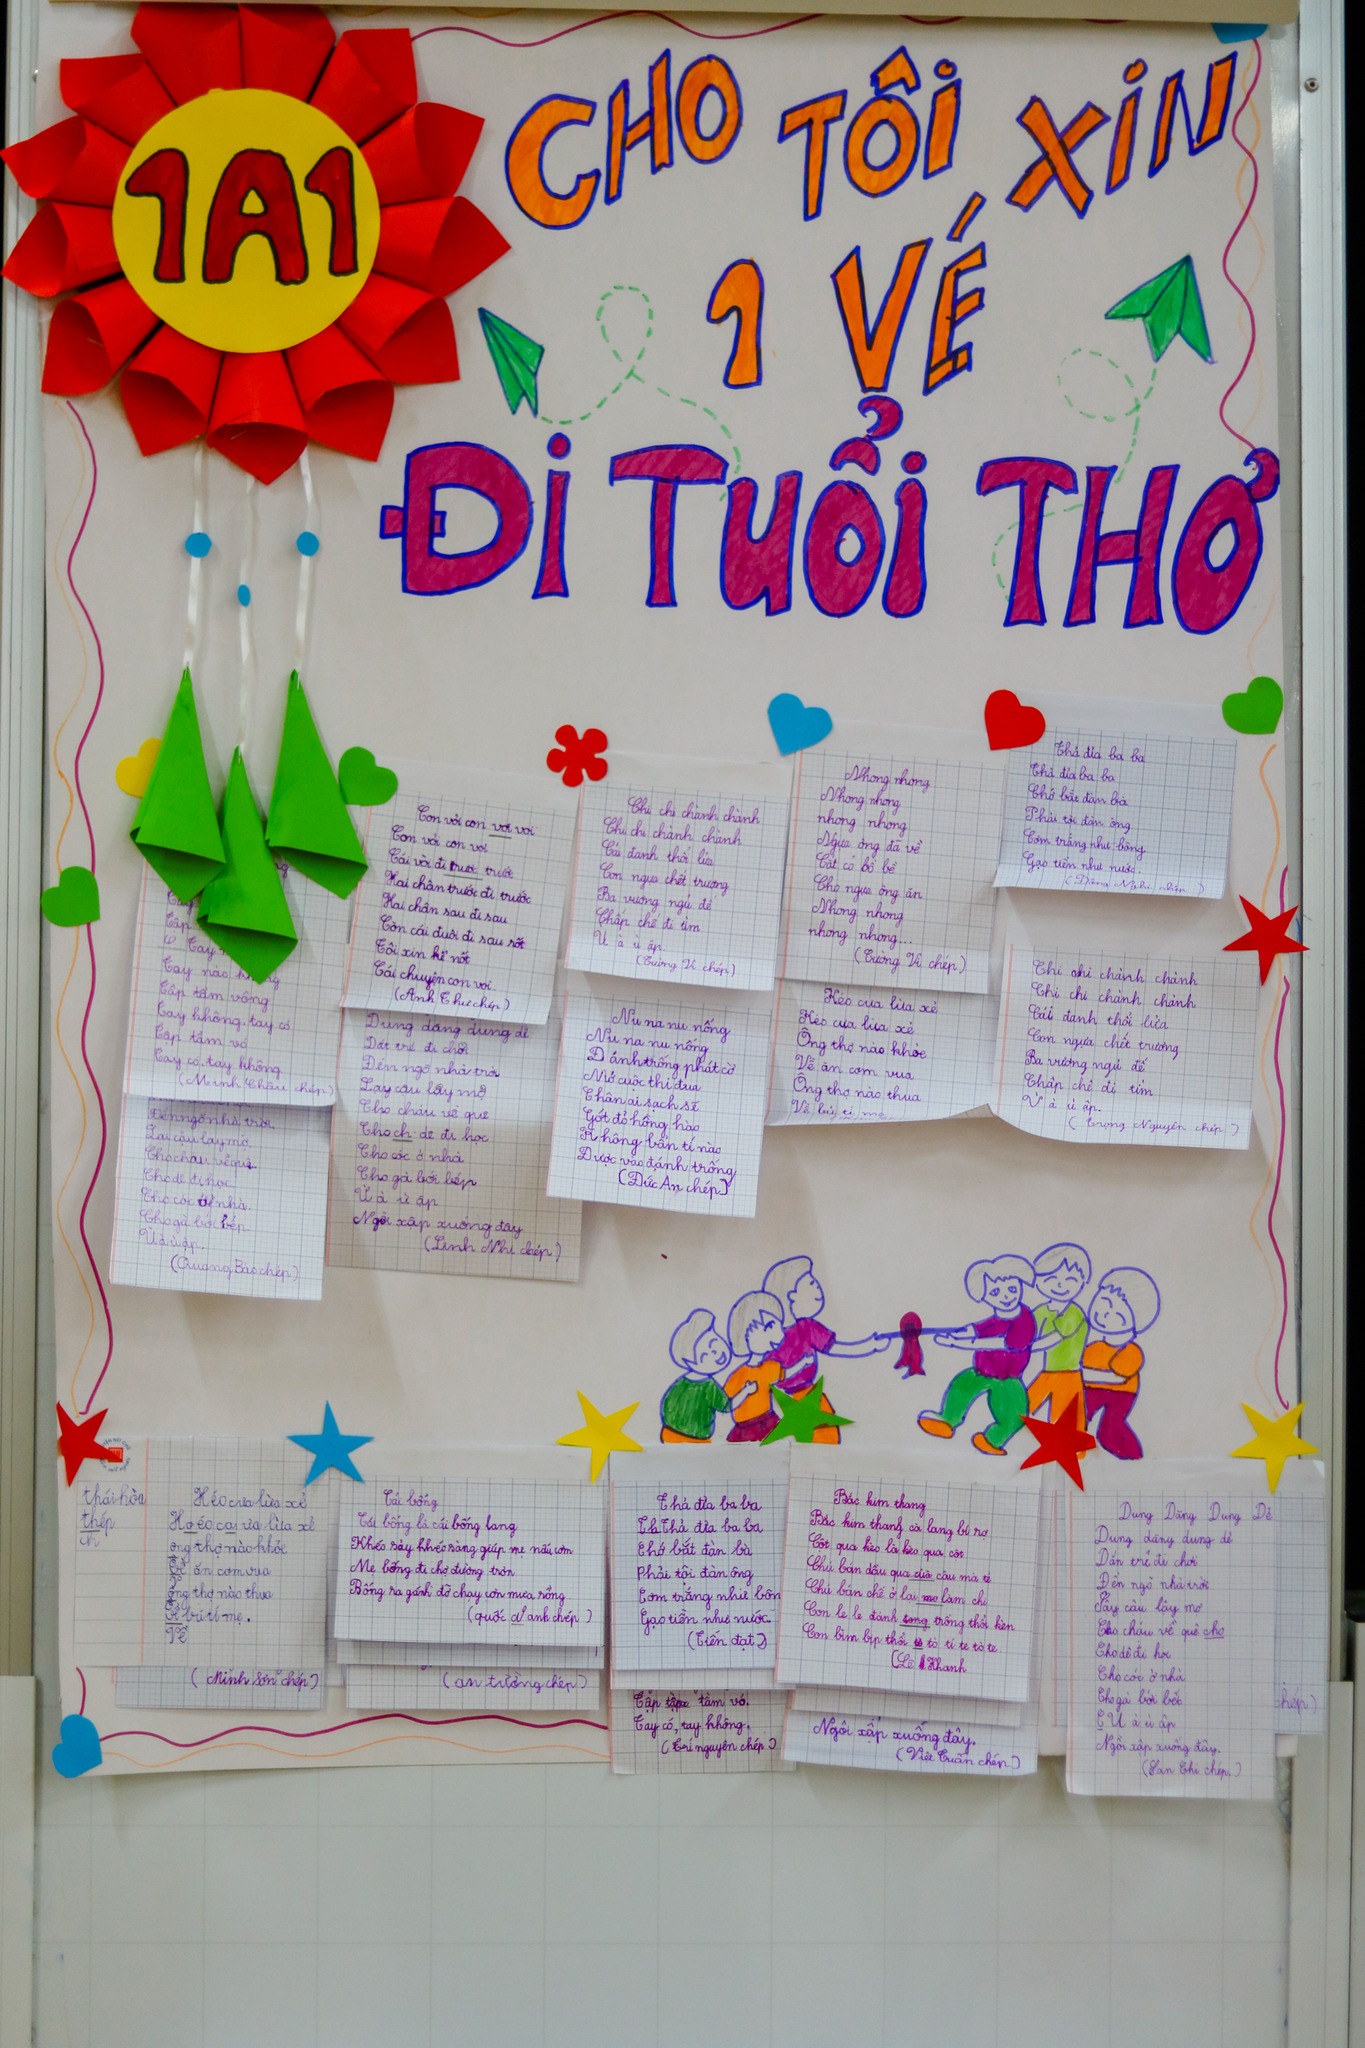 1A1
CHO TÔI XIN
1 VÉ
ĐI TUỔI THƠ
Tay nào không
Tập tầm vông
Tay không, tay có
Tập tầm vó
Tay có, tay không.
(Minh Châu chép)
Đến ngõ nhà trời
Lạy cậu lạy mợ
Cho cháu về quê
Cho dê đi học
Cho cóc ở nhà.
Cho gà bới bếp
Ù à ù ập.
(Quang Bảo chép)
Con vỏi con voi voi
Con vỏi con voi
Cái vòi đi trước trước
Hai chân trước đi trước
Hai chân sau đi sau
Còn cái đuôi đi sau rốt
Tôi xin kể nốt
Cái chuyện con voi.
(Anh Thư chép)
Dung dăng dung dẻ
Dắt trẻ đi chơi
Đến ngõ nhà trời
Lạy cậu lạy mợ
Cho cháu về quê
Cho ch dê đi học
Cho cóc ở nhà
Cho gà bới bếp
Ù à ù ập
Ngồi xập xuống đây
(Linh Nhi chép)
Chi chi chành chành
Chi chi chành chành
Cái đanh thổi lửa
Con ngựa chết trương
Ba vương ngũ đế
Chấp chế đi tìm
Ù à ù ập.
(Tường Vi chép)
Nu na nu nống
Nu na nu nống
Đánh trống phất cờ
Mở cuộc thi đua
Chân ai sạch sẽ
Gót đỏ hồng hào
Không bẩn tí nào
Được vào đánh trống
(Đức An chép)
Nhong nhong
Nhong nhong
nhong nhong
Ngựa ông đã về
Cắt cỏ bồ đề
Cho ngựa ông ăn
Nhong nhong
nhong nhong...
(Tường Vi chép)
Kéo cưa lừa xẻ
Kéo cưa lừa xẻ
Ông thợ nào khỏe
Về ăn cơm vua
Ông thợ nào thua
Về bú tí mẹ
Thả đỉa ba ba
Thả đỉa ba ba
Chớ bắt đàn bà
Phải tội đàn ông
Cơm trắng như bông
Gạo tiền như nước.
Chi chi chành chành
Chi chi chành chành
Cái đanh thổi lửa
Con ngựa chết trương
Ba vương ngũ đế
Chấp chế đi tìm
Ù à ù ập.
(Trọng Nguyên chép)
thái hòa
thép
ch
Kéo cưa lừa xẻ
ông thợ nào khỏe
Về ăn cơm vua
ông thợ nào thua
Về bú tí mẹ.
Về
(Minh Sơn chép)
Cái bống
Cái bống là cái bống bang
Khéo sảy khéo sàng giúp mẹ nấu cơm
Mẹ bống đi chợ đường trơn
Bống ra gánh đỡ chạy cơn mưa ròng
anh chép)
chép)
Thả đỉa ba ba
Thả đỉa ba ba
Chớ bắt đàn bà
Phải tội đàn ông
Cơm trắng như bôn
Gạo tiền như nước
(Tiến đạt)
Tập tầm vó.
Tay có, tay không.
(Trí nguyên chép)
Bắc kim thang
Bắc kim thang cà lang bí rợ
Cột qua kèo là kèo qua cột
Chú bán dầu qua cầu mà té
Chú bán ếch ở lại làm chi
Con le le đánh trống thổi kèn
Con bìm bịp thổi tò tí te tò te.
Khanh
Ngồi xập xuống đây.
(Viết Tuấn chép)
Dung Dăng Dung Dẻ
Dung dăng dung dẻ
Dắn trẻ đi chơi
Đến ngõ nhà trời
Lậy cậu lậy mợ
Cho cháu về quê cho
Cho dê đi học
Cho cóc ở nhà
Cho gà bới bếp
Ù à ù ập
Ngồi xập xuống đây.
chép.)
chép)